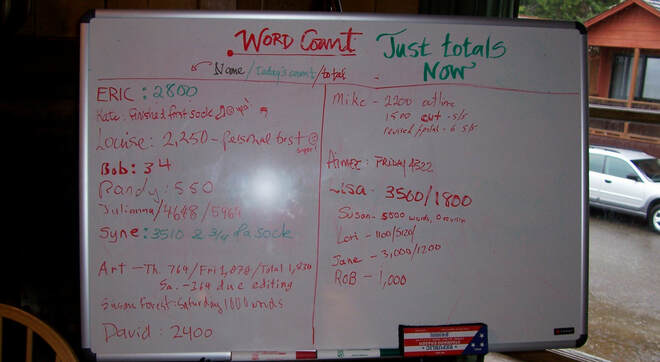 WORD COUNT
Just totals
Now
Name/today's count/totals
ERIC: 2800
Kate: finished first sock
Louise: 2,250 - personal best
Bob: 34
Randy: 550
Julianna/4648/5964
Syne: 3510 2 3/4 of a sock
Art - Th. 769/Fri 1,070/Total 1,830
Sa. - 369 due editing
Susan Forest: Saturday 1000 words
David: 2400
Mike - 2200 outline
1500 cut - s/s
Aimee: FRIDAY 4322
Lisa - 3500/1800
Susan - 5000 words
Lori - 1100/5120/
Jane - 31,000/1200
ROB - 1,000